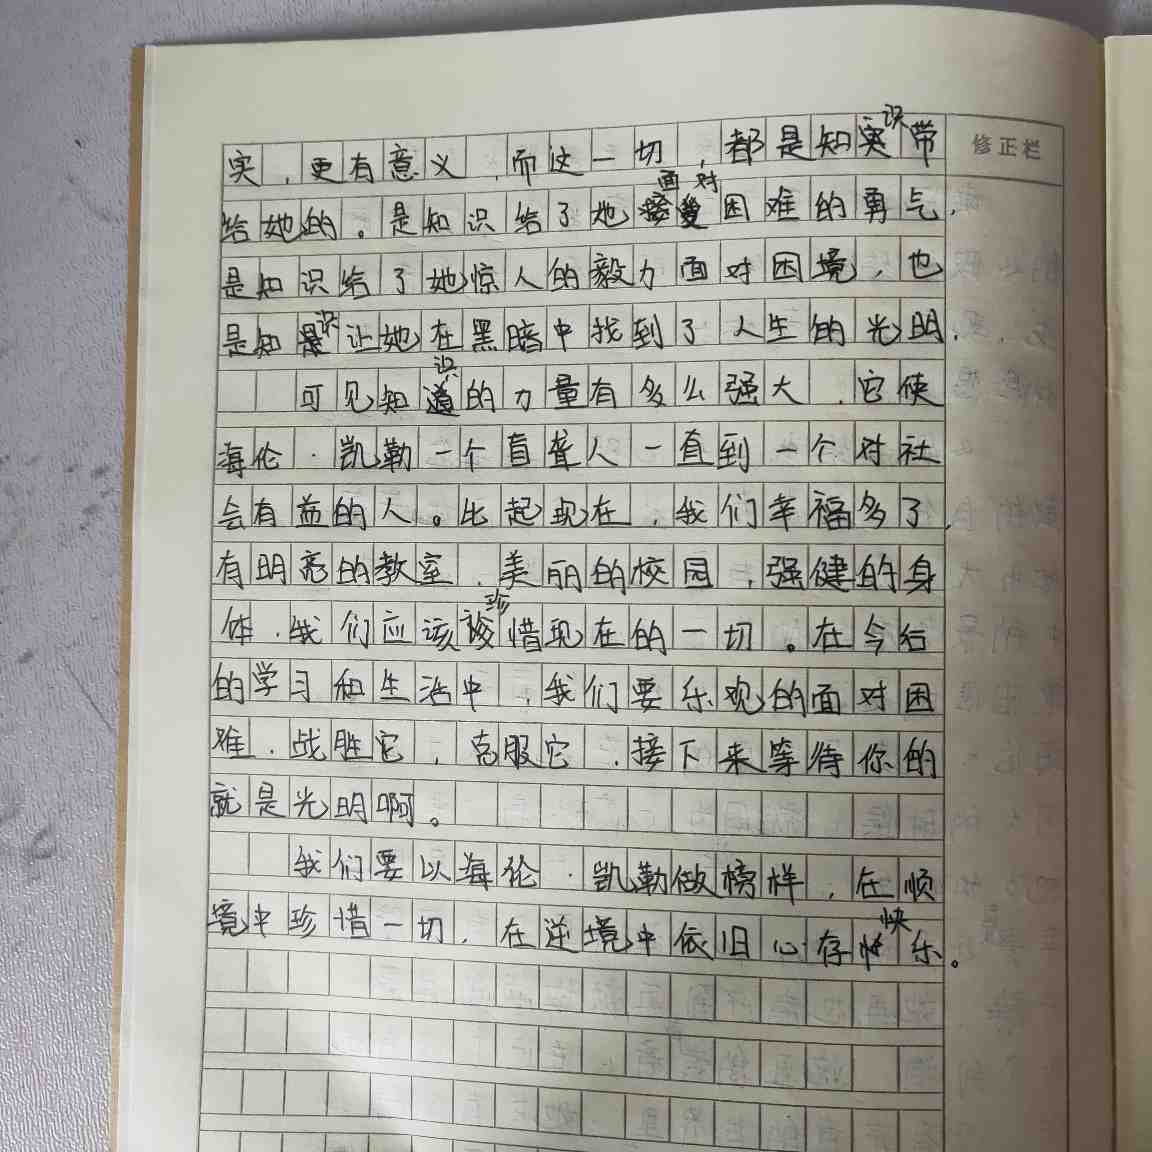 实，更有意义，而这一切，都是知识带
修正栏
给她的。是知识给了她面对困难的勇气，
是知识给了她惊人的毅力面对困境，也
是知识让她在黑暗中找到了人生的光明。
可见知识的力量有多么强大，它使
海伦·凯勒一个盲聋人一直到一个对社
会有益的人。比起现在，我们幸福多了，
有明亮的教室，美丽的校园，强健的身
体，我们应该珍惜现在的一切。在今后
的学习和生活中，我们要乐观的面对困
难，战胜它，克服它，接下来等待你的
就是光明啊。
我们要以海伦·凯勒做榜样，在顺
境中珍惜一切，在逆境中依旧心存快乐。